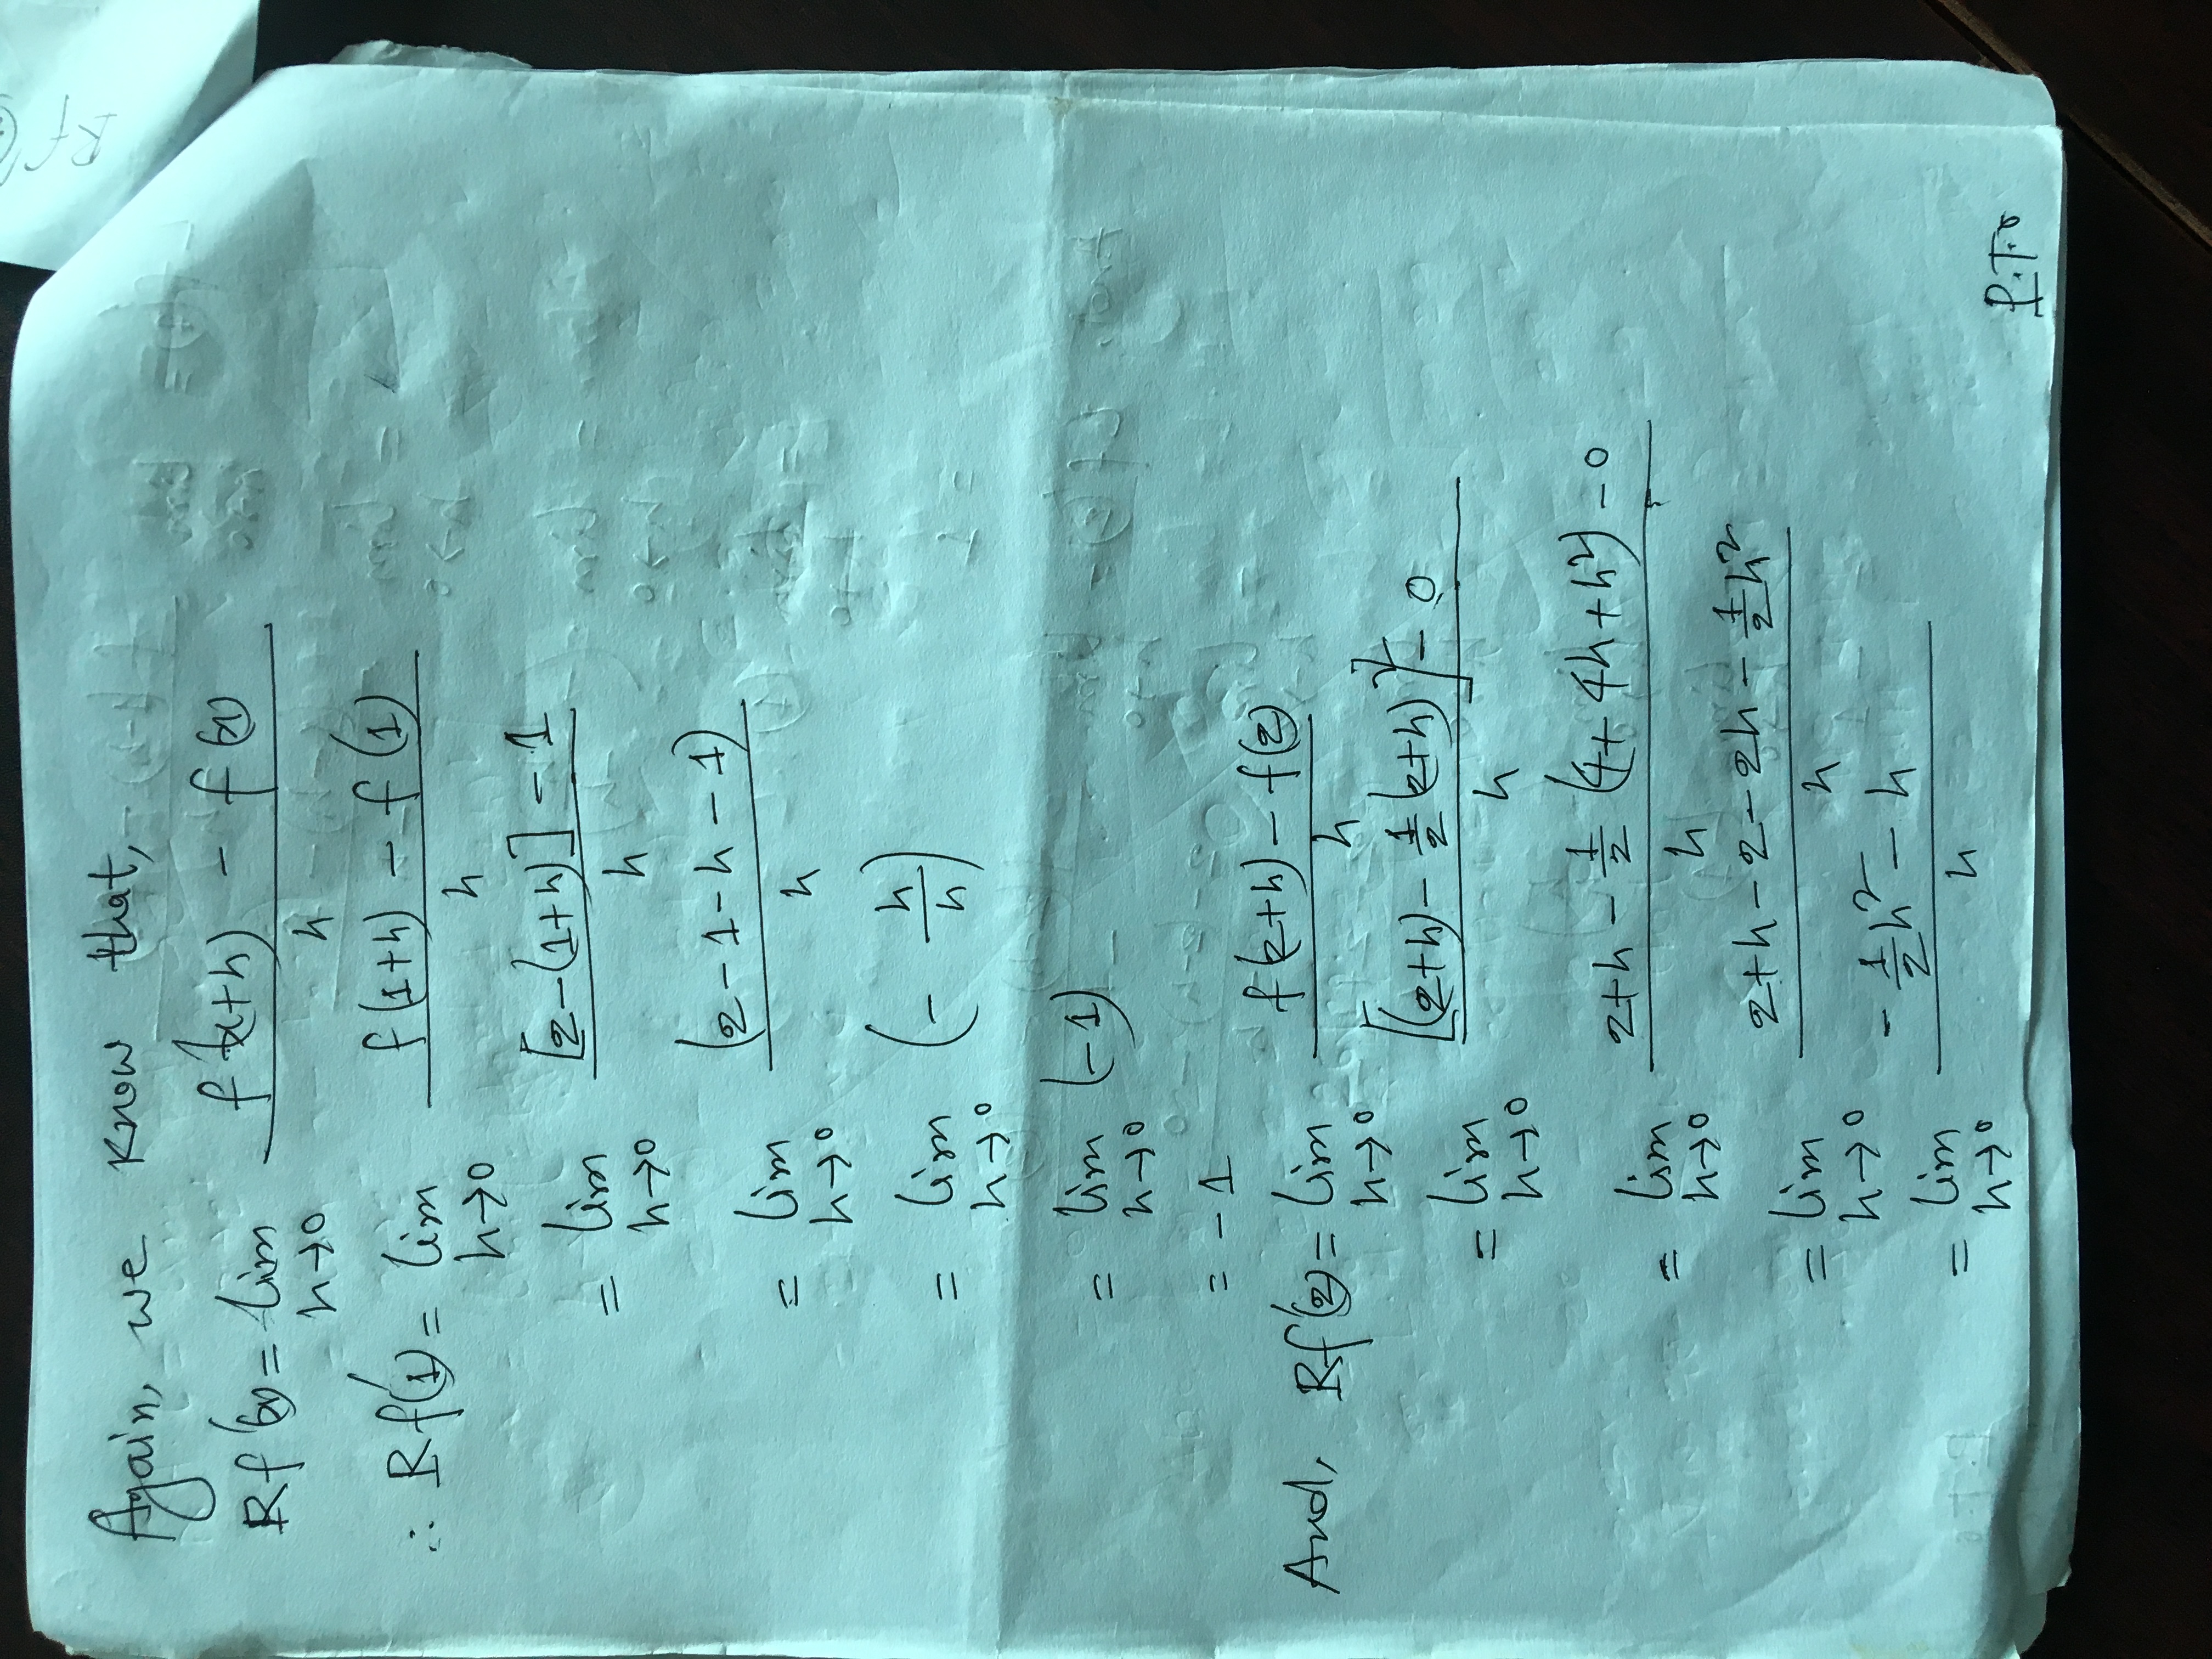 Again, we know that,
Rf'(x) = lim h→0 f(x+h) - f(x) / h
∴ Rf'(1) = lim h→0 f(1+h) - f(1) / h
= lim h→0 [2-(1+h)] - 1 / h
= lim h→0 (2-1-h-1) / h
= lim h→0 (- h/h)
= lim h→0 (-1)
= -1
And, Rf'(2) = lim h→0 f(2+h) - f(2) / h
= lim h→0 [(2+h) - 1/2 (2+h)]² - 0 / h
= lim h→0 2+h - 1/2 (4+4h+h²) - 0 / h
= lim h→0 2+h-2-2h-1/2h² / h
= lim h→0 -1/2h² - h / h
P.T.O
Rf'(